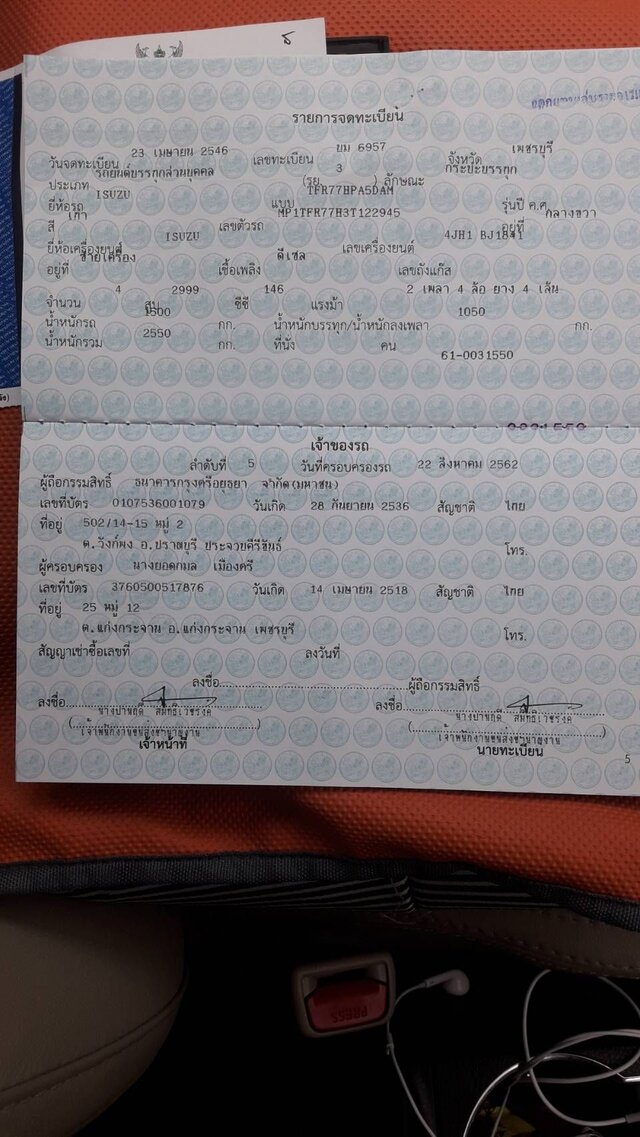 รายการจดทะเบียน
วันจดทะเบียน 23 เมษายน 2546 เลขทะเบียน ยม 6957 จังหวัด เพชรบุรี
ประเภท รถยนต์บรรทุกส่วนบุคคล (รย 3 ) ลักษณะ กระบะบรรทุก
ยี่ห้อรถ ISUZU แบบ TFR77HPA5DAM รุ่นปี ค.ศ.
สี เทา เลขตัวรถ MP1TFR77H3T122945 อยู่ที่ กลางขวา
ยี่ห้อเครื่องยนต์ ISUZU เลขเครื่องยนต์ 4JH1 BJ1841
อยู่ที่ ซ้ายเครื่อง เชื้อเพลิง ดีเซล เลขถังแก๊ส
จำนวน 4 สูบ 2999 ซีซี 146 แรงม้า 2 เพลา 4 ล้อ ยาง 4 เส้น
น้ำหนักรถ 1500 กก. น้ำหนักบรรทุก/น้ำหนักลงเพลา 1050 กก.
น้ำหนักรวม 2550 กก. ที่นั่ง คน
61-0031550
เจ้าของรถ
ลำดับที่ 5 วันที่ครอบครองรถ 22 สิงหาคม 2562
ผู้ถือกรรมสิทธิ์ ธนาคารกรุงศรีอยุธยา จำกัด(มหาชน)
เลขที่บัตร 0107536001079 วันเกิด 28 กันยายน 2536 สัญชาติ ไทย
ที่อยู่ 502/14-15 หมู่ 2
ต.วังก์พง อ.ปราณบุรี ประจวบคีรีขันธ์ โทร.
ผู้ครอบครอง นางยอดกมล เมืองศรี
เลขที่บัตร 3760500517876 วันเกิด 14 เมษายน 2518 สัญชาติ ไทย
ที่อยู่ 25 หมู่ 12
ต.แก่งกระจาน อ.แก่งกระจาน เพชรบุรี โทร.
สัญญาเช่าซื้อเลขที่ ลงวันที่
ลงชื่อ ผู้ถือกรรมสิทธิ์
ลงชื่อ ลงชื่อ
เจ้าพนักงานขนส่งชำนาญงาน เจ้าพนักงานขนส่งชำนาญงาน
เจ้าหน้าที่ นายทะเบียน
5
PRESS